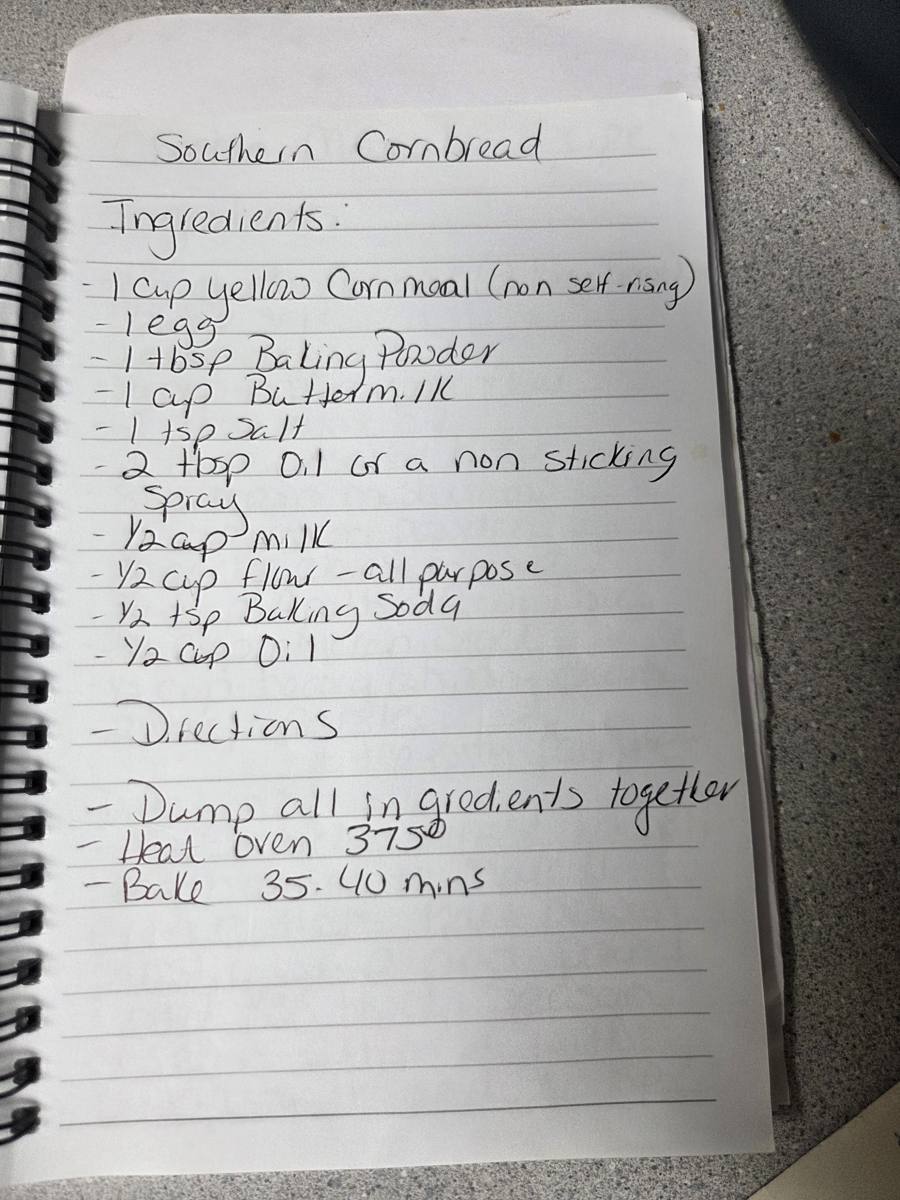 Southern Cornbread
Ingredients:
- 1 cup yellow Cornmeal (non self-rising)
- 1 egg
- 1 tbsp Baking Powder
- 1 cup Buttermilk
- 1 tsp Salt
- 2 tbsp Oil or a non sticking
Spray
- 1/2 cup milk
- 1/2 cup flour - all purpose
- 1/2 tsp Baking Soda
- 1/2 cup Oil
- Directions
- Dump all ingredients together
- Heat oven 375°
- Bake 35-40 mins